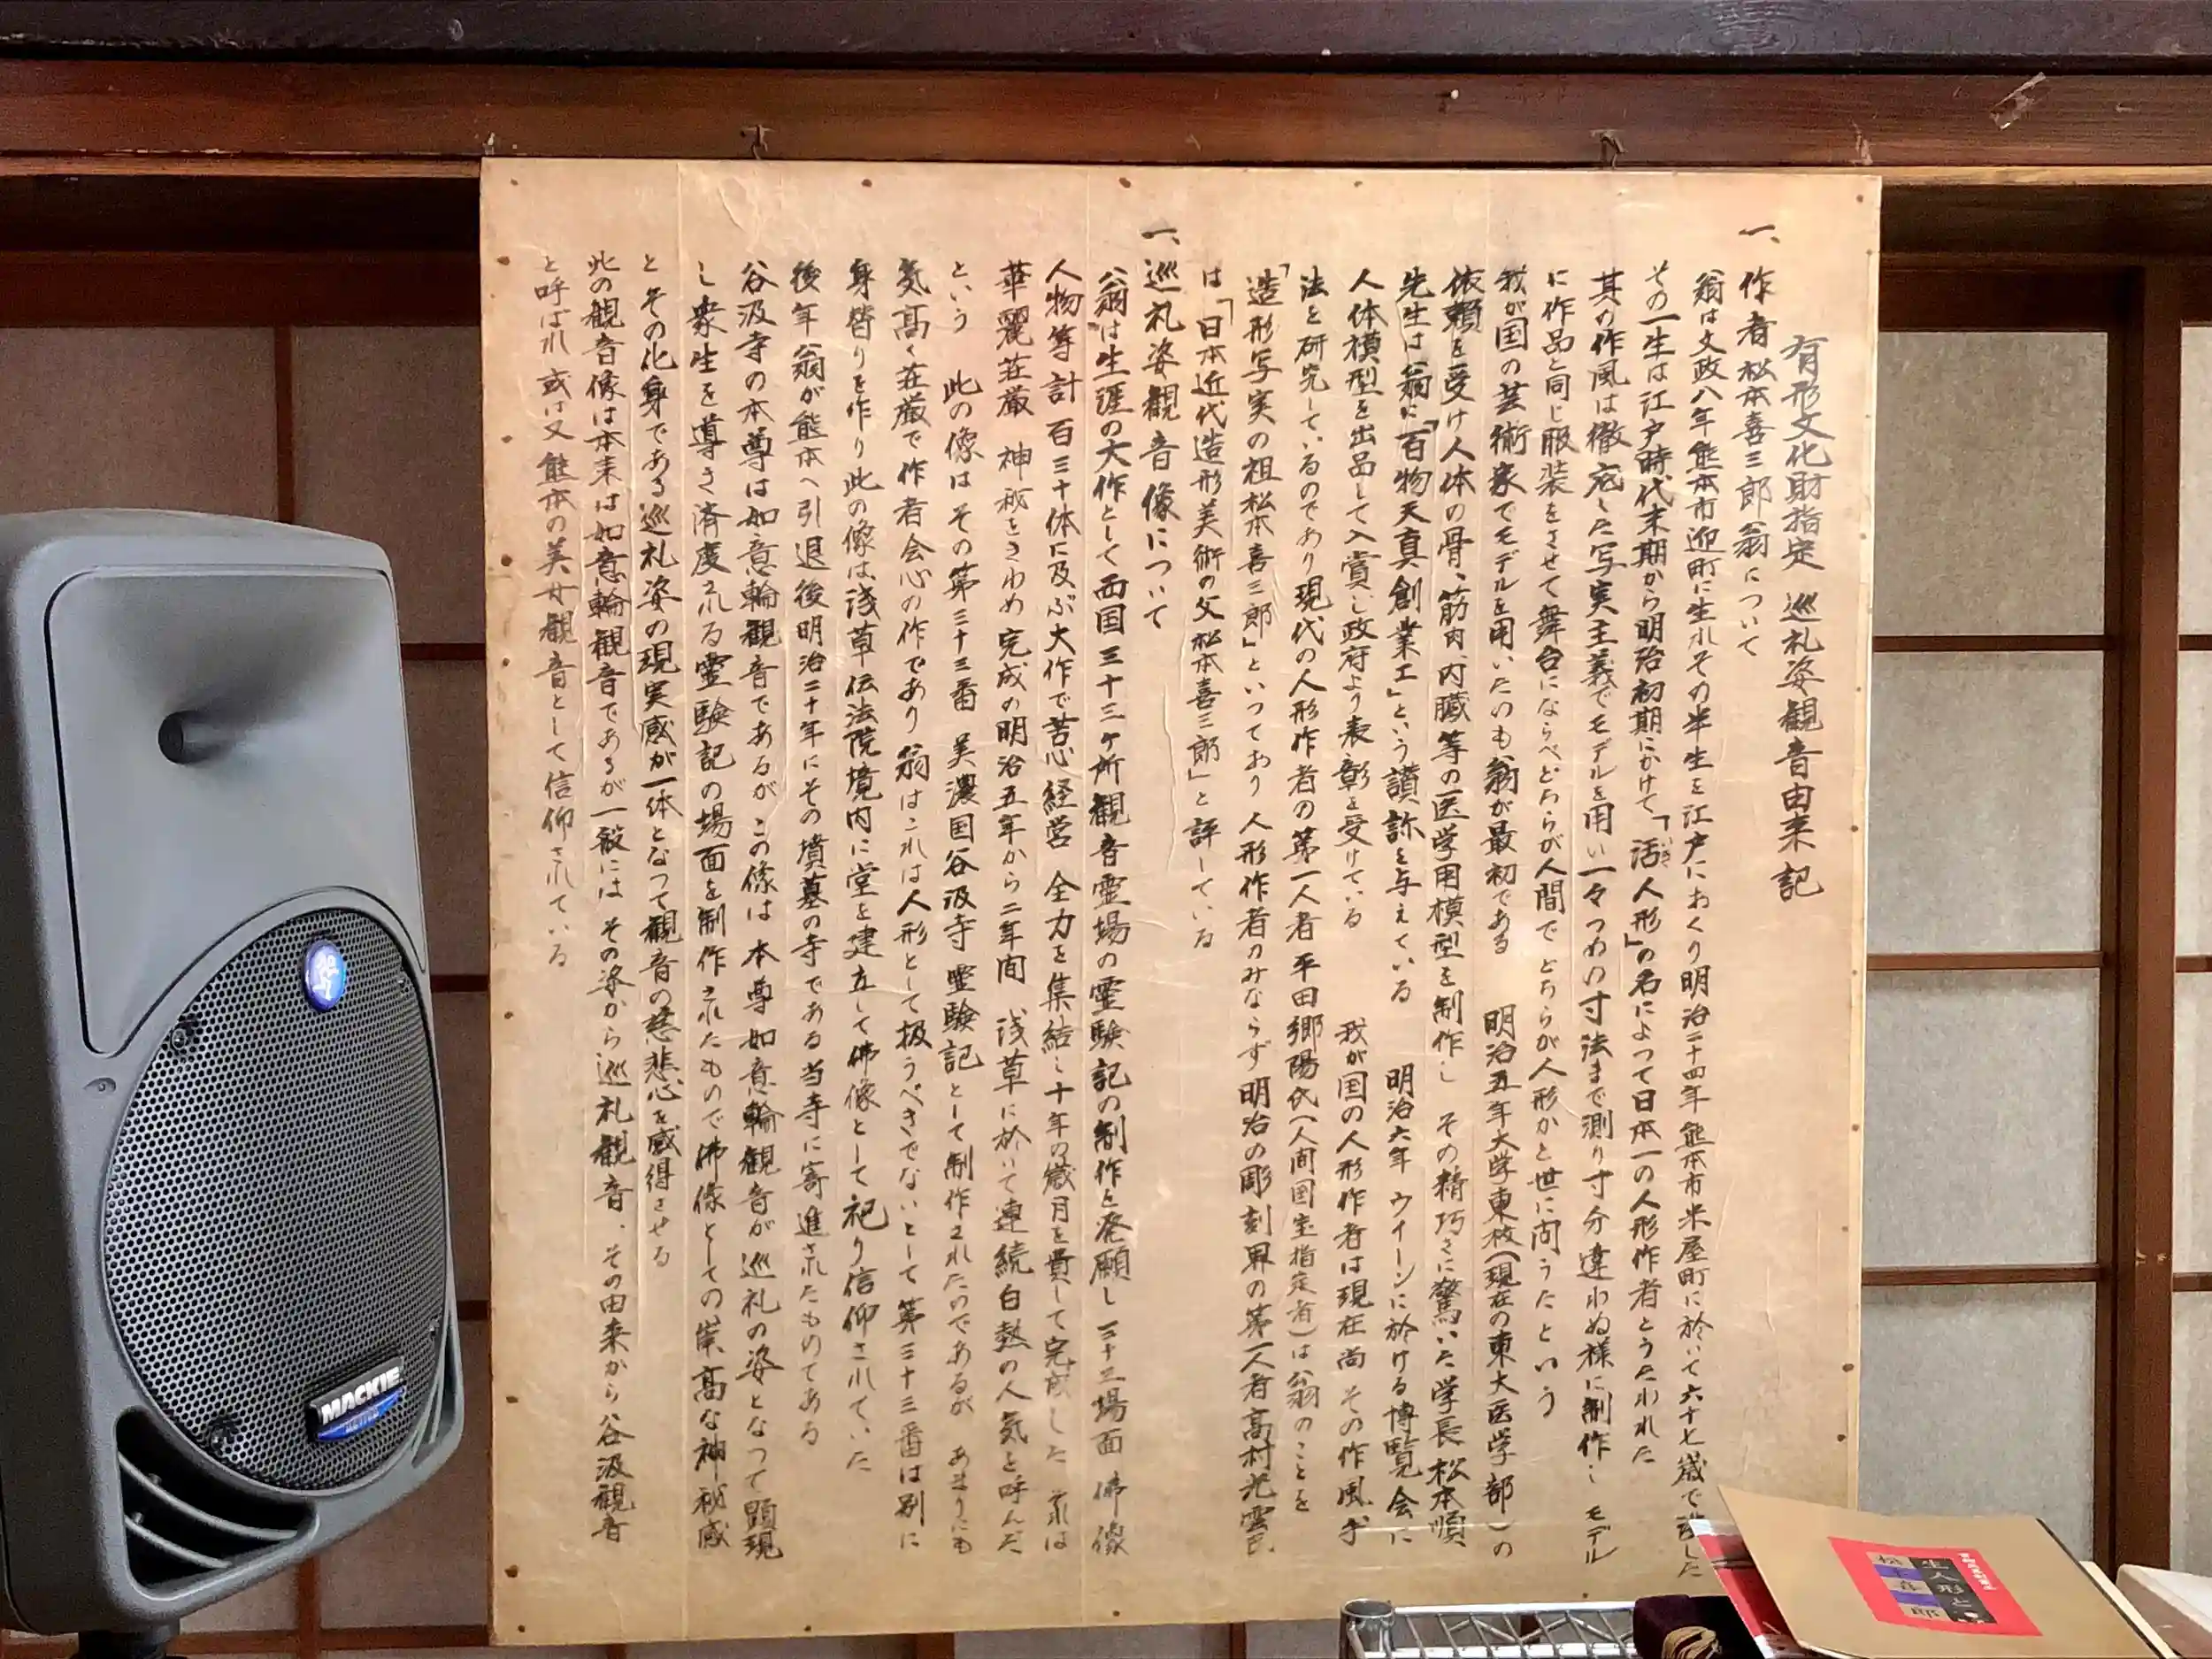 有形文化財指定 巡礼姿観音由来記
一、作者松本喜三郎翁について
翁は文政八年熊本市迎町に生れその半生を江戸におくり明治二十四年熊本市米屋町に於いて六十七歳で没した
その一生は江戸時代末期から明治初期にかけて「活人形」の名によつて日本一の人形作者とうたわれた
いき
其の作風は徹底した写実主義でモデルを用い一々つめい寸法まで測り寸分違わぬ様に制作し モデル
に作品と同じ服装をさせて舞台にならべどちらが人間で どちらが人形かと世に問うたという
我が国の芸術家でモデルを用いたのも翁が最初である 明治五年大学東校(現在の東大医学部)の
依頼を受け人体の骨、筋肉、内臓等の医学用模型を制作し その精巧さに驚いた学長松本順
先生は翁に「百物天真創業工」という讃称を与えている 明治六年 ウイーンに於ける博覧会に
人体模型を出品して入賞し政府より表彰を受けている 我が国の人形作者は現在尚 その作風、手
法を研究しているのであり現代の人形作者の第一人者平田郷陽氏(人間国宝指定者)は翁のことを
「造形写実の祖松本喜三郎」といつており人形作者のみならず明治の彫刻界の第一人者高村光雲氏
は「日本近代造形美術の父松本喜三郎」と評している
一、巡礼姿観音像について
翁は生涯の大作として西国三十三ヶ所観音霊場の霊験記の制作を発願し三十三場面 佛像
人物等計百三十体に及ぶ大作で苦心経営 全力を集結し十年の歳月を費して完成した
華麗荘厳 神秘をきわめ完成の明治五年から二年間 浅草に於いて連続白熱の人気を呼んだ
という 此の像はその第三十三番 美濃国谷汲寺霊験記として制作されたのであるが あまりにも
気高く荘厳で作者会心の作であり翁はこれは人形として扱うべきでないとして第三十三番は別に
身替りを作り此の像は浅草伝法院境内に堂を建立して佛像として祀り信仰されていた
後年翁が熊本へ引退後明治二十年にその墳墓の寺である当寺に寄進されたものである
谷汲寺の本尊は如意輪観音であるがこの像は 本尊如意輪観音が巡礼の姿となつて顕現
し衆生を導き済度される霊験記の場面を制作されたもので佛像としての崇高な神秘感
とその化身である巡礼姿の現実感が一体となつて観音の慈悲心を感得させる
此の観音像は本来は如意輪観音であるが一般には その姿から巡礼観音、その由来から谷汲観音
と呼ばれ或は又熊本の美女観音として信仰されている
MACKIE.
生人形と
松本喜三郎